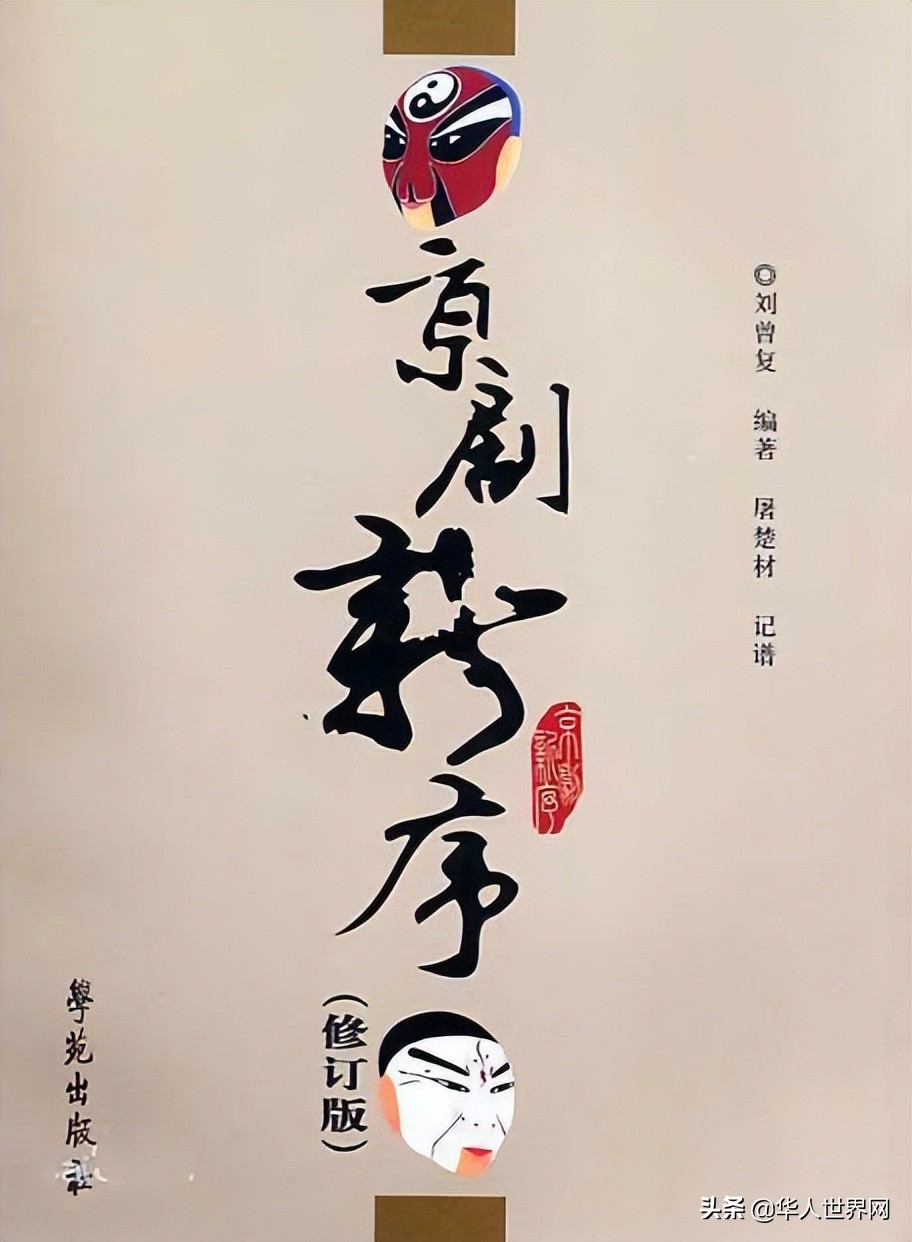 京剧新序
(修订版)
◎刘曾复 编著 屠楚材 记谱
京剧新序
學苑出版社
头条 @华人世界网